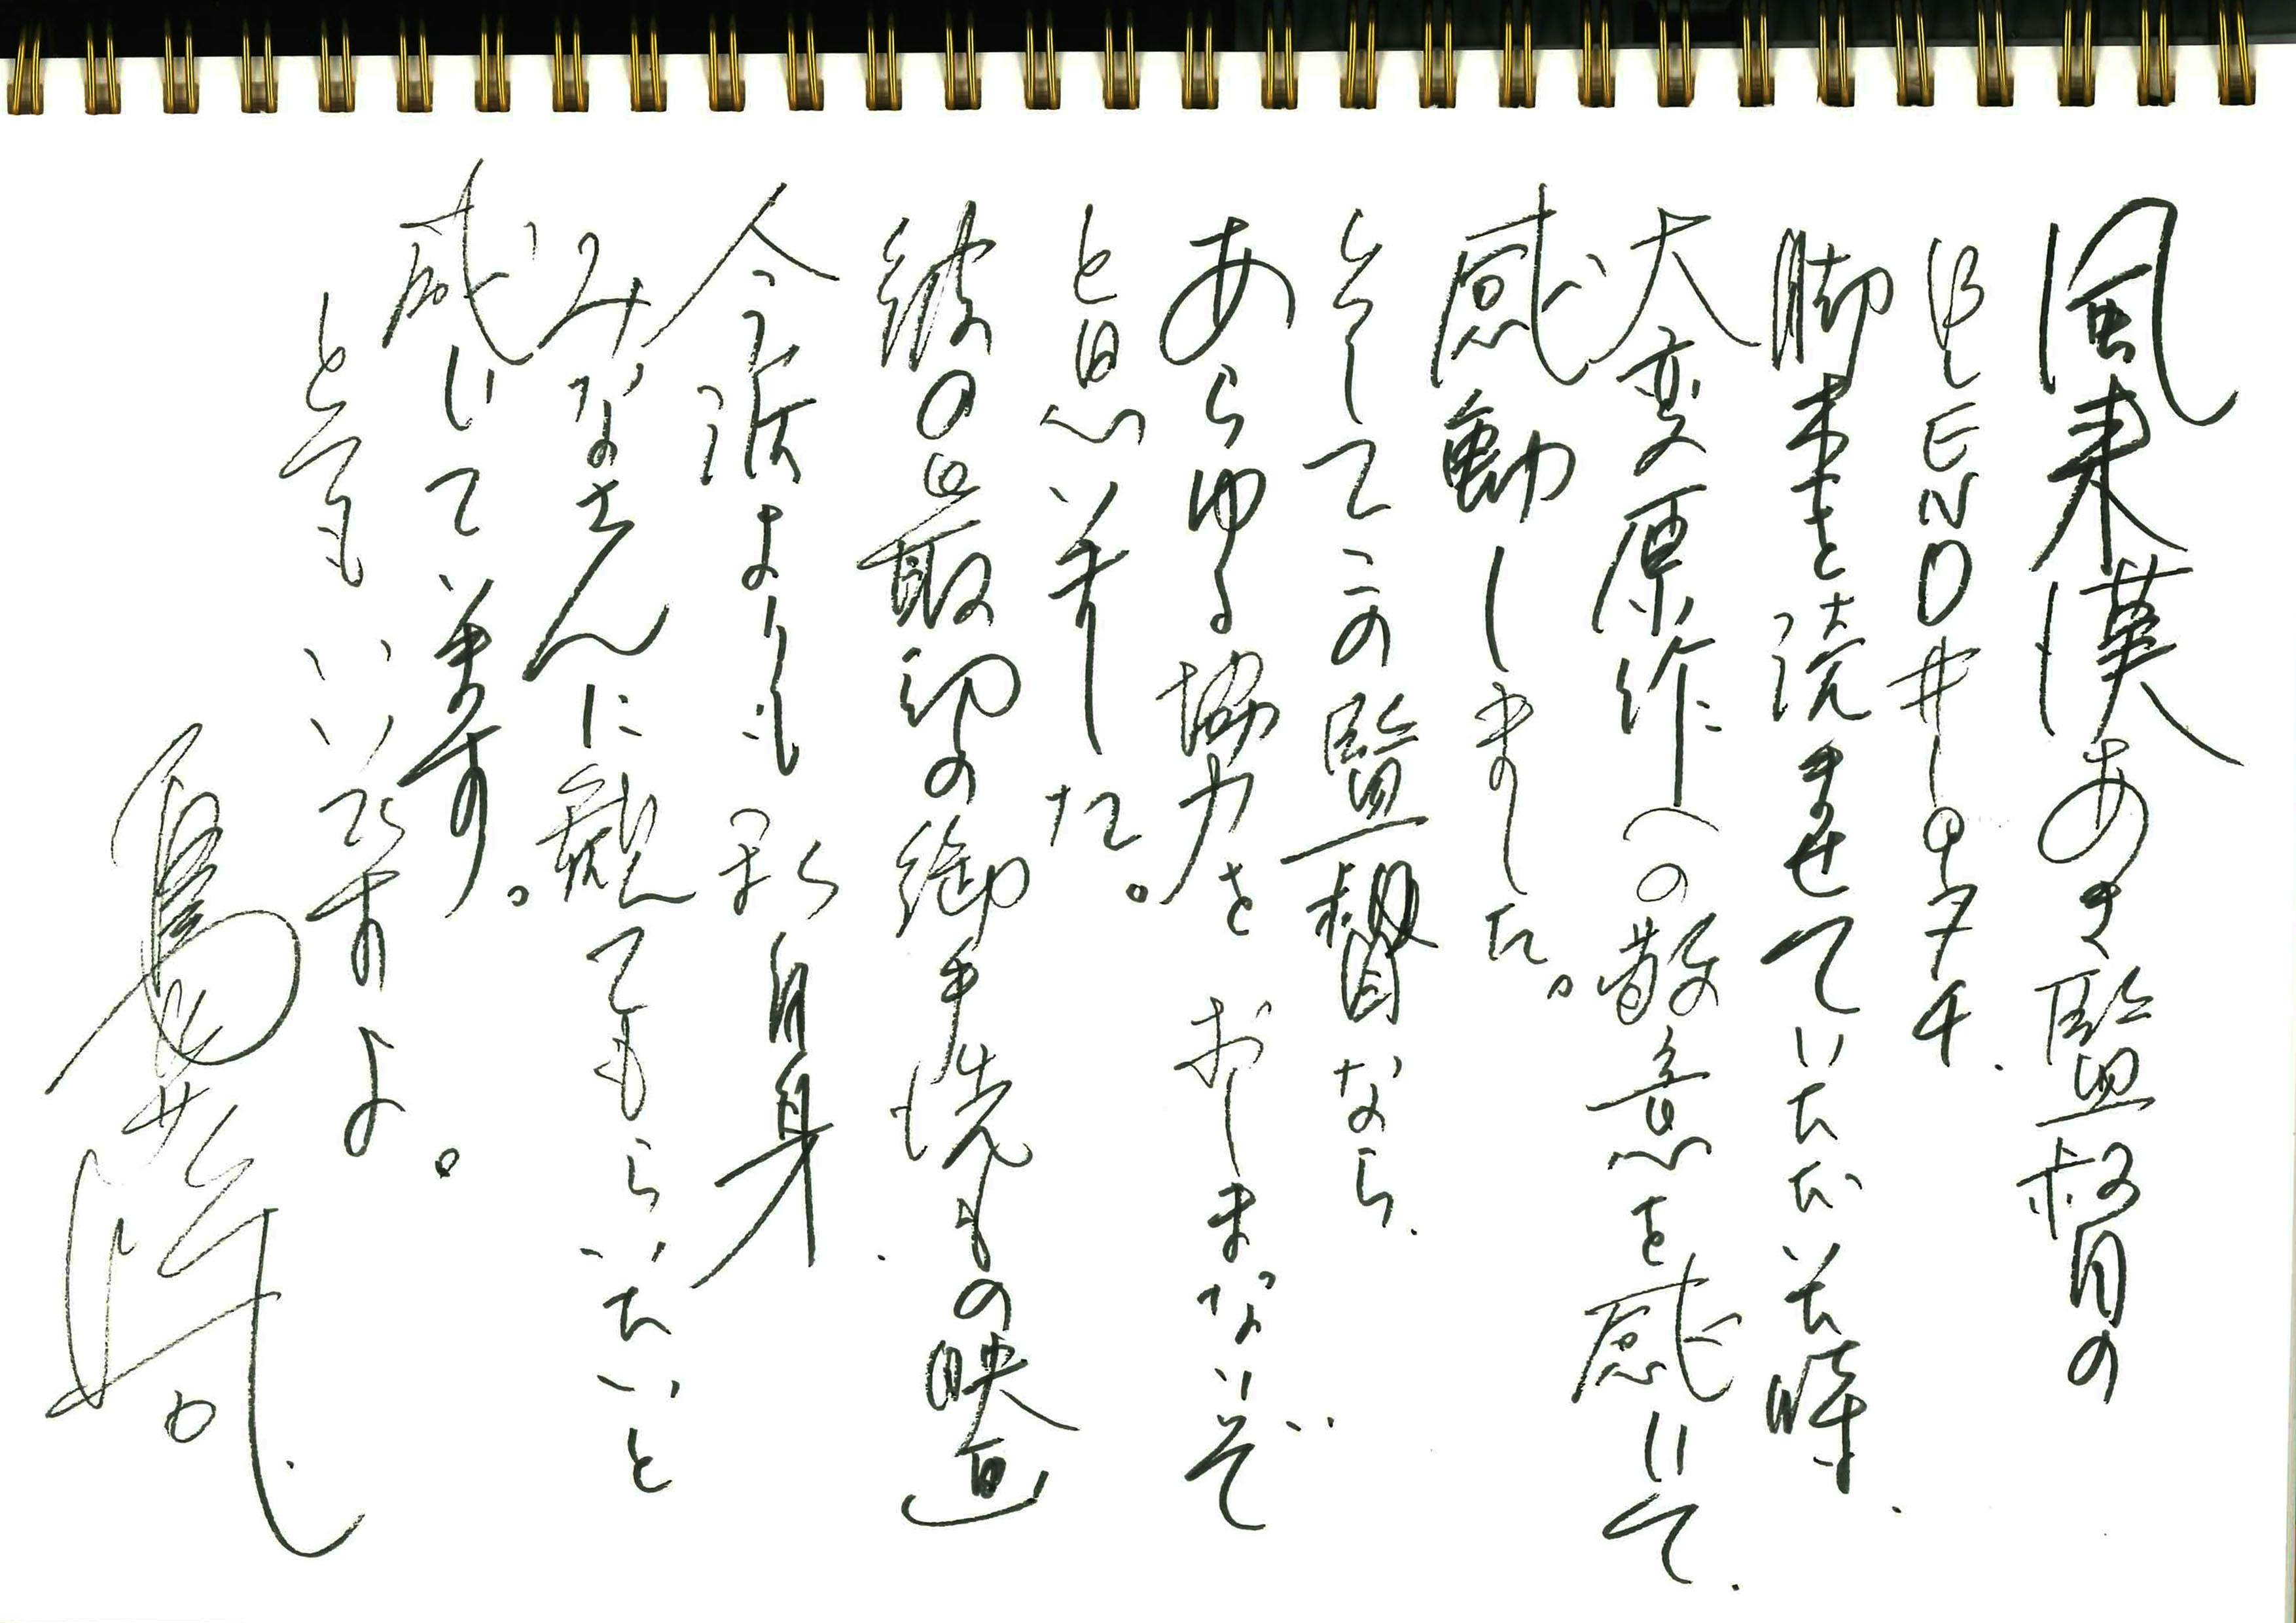 風来漢あき監督の
BLEND井ーロタチ、
脚本を読ませていただいた時、
大変原作への敬意を感じて、
感動しました。
そしてこの監督なら、
あらゆる協力をおしまないぞ
と思いました。
彼の最初の御手洗もの映画、
今誰よりも私自身
みなさんに観てもらいたいと
感じています。
とてもいいですよ。